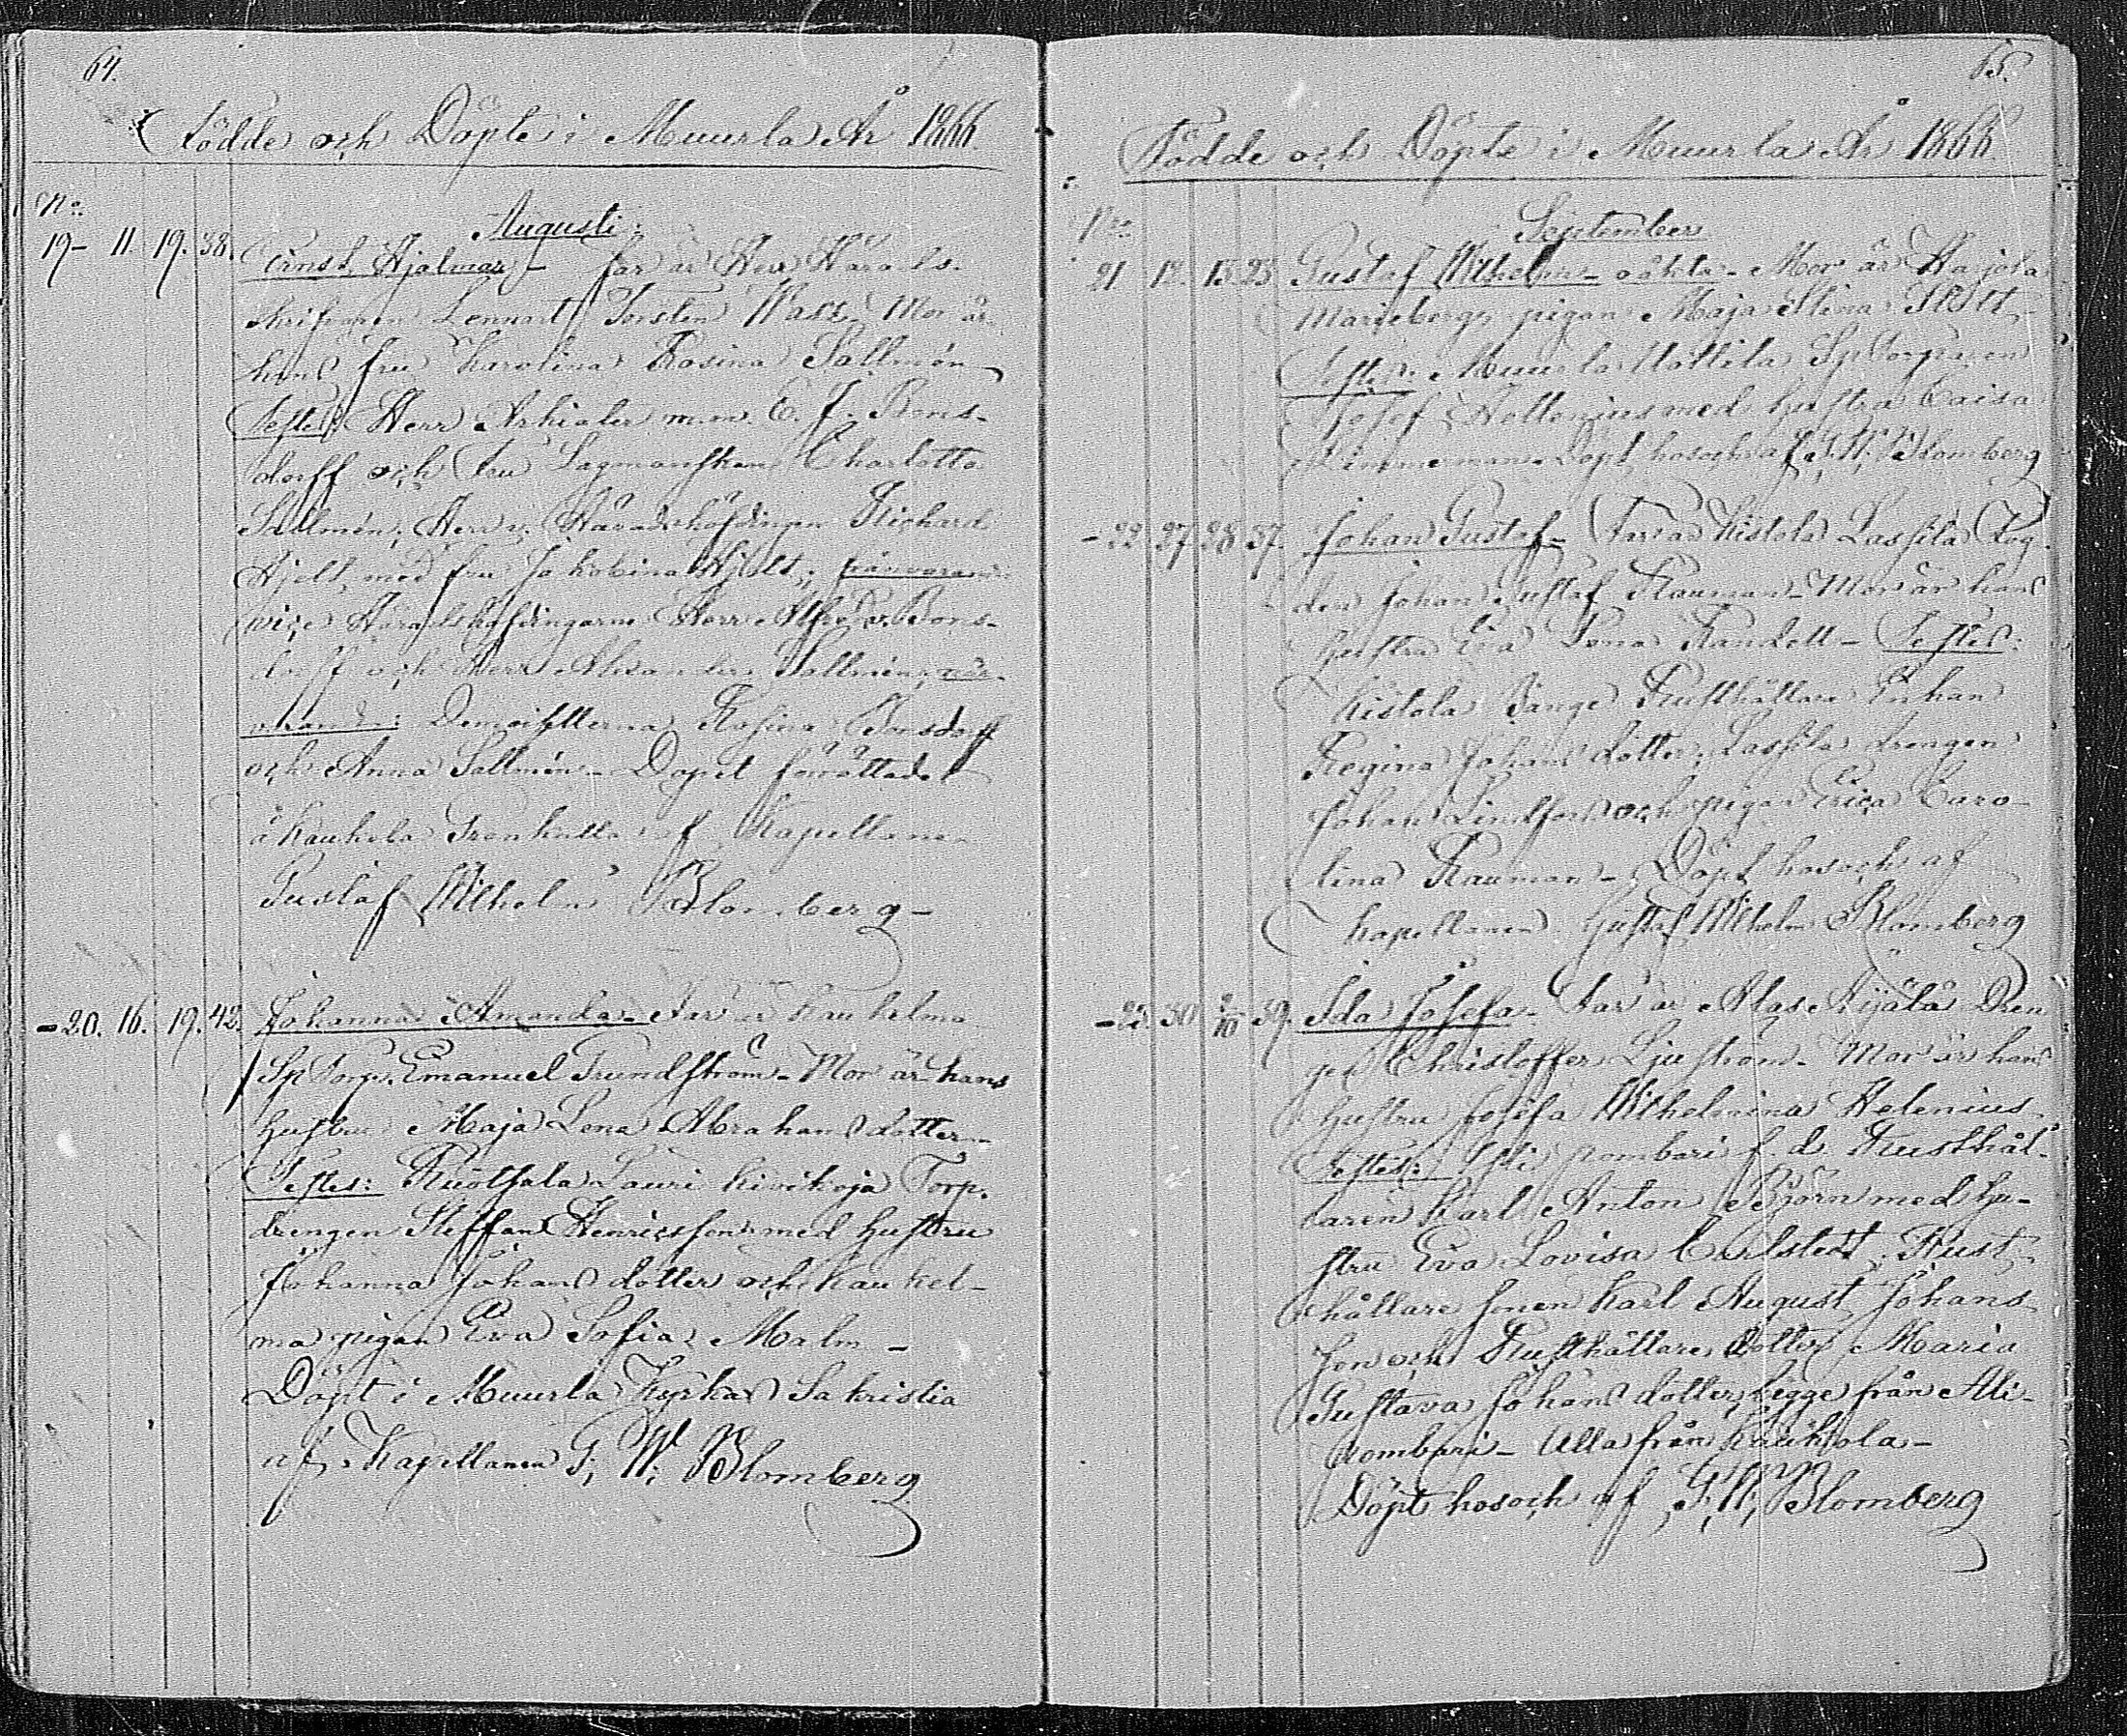 64.
Födde och Döpte i Muurla År 1866.
No.
Augusti.
19- 11. 19. 38. Ernst Hjalmar - far är Herr Härads-
skrifvaren Lennart Torsten Mor är
hans fru Karolina Rosina Sallmén,
Testes: Herr Arkiater m.m. E. J. Bons-
dorff och Fru Lagmanskan Charlotta
Sallmén; Herr v. Häradshöfdingen Richard
Hjelt med fru Jakobina Hjelt; frånvarande
vice Häradshöfdingarne Herr Alfred v. Bons-
dorff och Herr Alexander Sallmén; när-
varande: Demoisellerna Rosina Bonsdorff
och Anna Sallmén - Dopet förrättadt
å Kaukola af Kapellanen
Gustaf Wilhelm Blomberg -
- 20. 16. 19. 42. Johanna Amanda - Far är Kaukelma
Sp Torp. Emanuel Grundström - Mor är hans
hustru Maja Lena Abrahams dotter -
Testes: Ruotsala Lauri Kivikoja Torp.
drengen Steffan Henricsson med hustru
Johanna Johans dotter och Kaukel-
ma pigan Eva Sofia Malm -
Döpt i Muurla Kyrkas Sakristia
af Kapellanen G. W. Blomberg
65.
Födde och Döpte i Muurla År 1866.
No.
September
21 12. 13. 23. Gustaf Wilhelm - oäkta - Mor är
Marieberg pigan Maja Stina
Testes: Muurla Uottila Sp Torparen
Josef med hustru Caisa
Döpt hos och af G. W. Blomberg
- 22. 27. 28. 37. Johan Gustaf - Far är Kistola Lassila
Johan Gustaf Rauman - Mor är hans
hustru Eva Lena Randell - Testes:
Kistola Rusthållare Enkan
Regina Johans dotter, Lassila drengen
Johan Lindfors och pigan Erica Caro-
lina Rauman - Döpt hos och af
Kapellanen Gustaf Wilhelm Blomberg
- 23. 30 2/10 39. Ida Josefa - Far är Alas Kyälä Dren
gen Christoffer Ljuström - Mor är hans
hustru Josefa Wilhelmina Helenius.
Testes: pombari f. d. Rusthål-
laren Karl Anton Björn med hu-
stru Eva Lovisa Carlstedt, Rust-
hållare sonen Karl August Johans-
son och Rusthållare dotter Maria
Gustava Johans dotter, begge från Ali-
pombari - Alla från Kaukola -
Döpt hos och af G. W. Blomberg